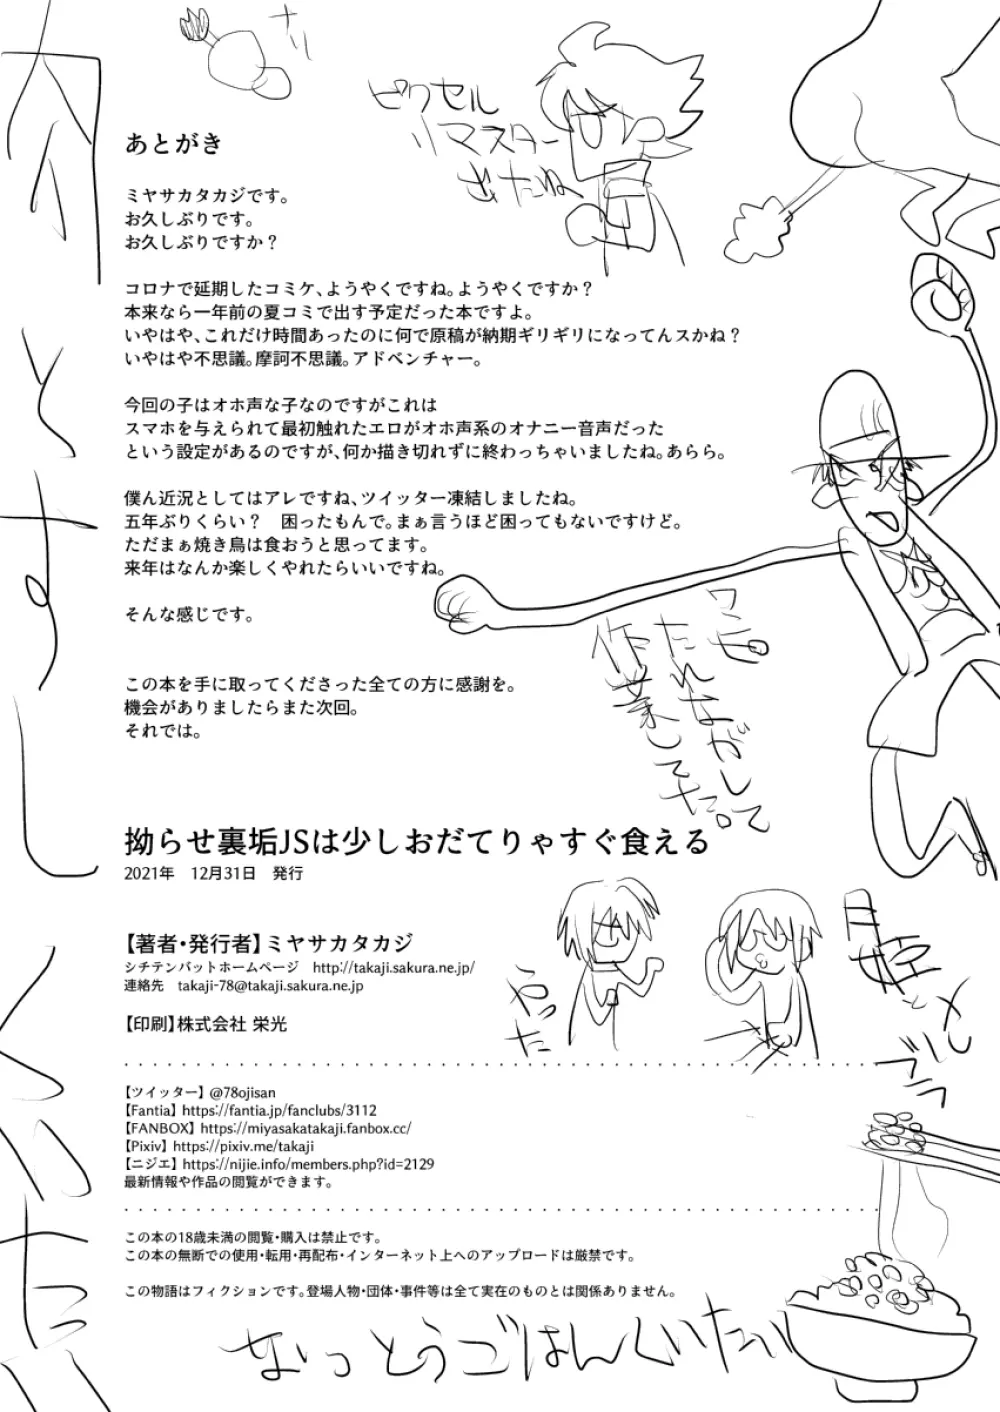 あとがき
ミヤサカタカジです。
お久しぶりです。
お久しぶりですか？
コロナで延期したコミケ、ようやくですね。ようやくですか？
本来なら一年前の夏コミで出す予定だった本ですよ。
いやはや、これだけ時間あったのに何で原稿が納期ギリギリになってんスかね？
いやはや不思議。摩訶不思議。アドベンチャー。
今回の子はオホ声な子なのですがこれは
スマホを与えられて最初触れたエロがオホ声系のオナニー音声だった
という設定があるのですが、何か描き切れずに終わっちゃいましたね。あらら。
僕ん近況としてはアレですね、ツイッター凍結しましたね。
五年ぶりくらい？　困ったもんで。まぁ言うほど困ってもないですけど。
ただまぁ焼き鳥は食おうと思ってます。
来年はなんか楽しくやれたらいいですね。
そんな感じです。
この本を手に取ってくださった全ての方に感謝を。
機会がありましたらまた次回。
それでは。
拗らせ裏垢JSは少しおだてりゃすぐ食える
2021年　12月31日　発行
【著者・発行者】ミヤサカタカジ
シチテンバットホームページ　http://takaji.sakura.ne.jp/
連絡先　takaji-78@takaji.sakura.ne.jp
【印刷】株式会社 栄光
【ツイッター】@78ojisan
【Fantia】https://fantia.jp/fanclubs/3112
【FANBOX】https://miyasakatakaji.fanbox.cc/
【Pixiv】https://pixiv.me/takaji
【ニジエ】https://nijie.info/members.php?id=2129
最新情報や作品の閲覧ができます。
この本の18歳未満の閲覧・購入は禁止です。
この本の無断での使用・転用・再配布・インターネット上へのアップロードは厳禁です。
この物語はフィクションです。登場人物・団体・事件等は全て実在のものとは関係ありません。
ピクセル
リマスター
出たね
ワンピ
たれながして
作業してた
やった
なっとうごはんくいたい